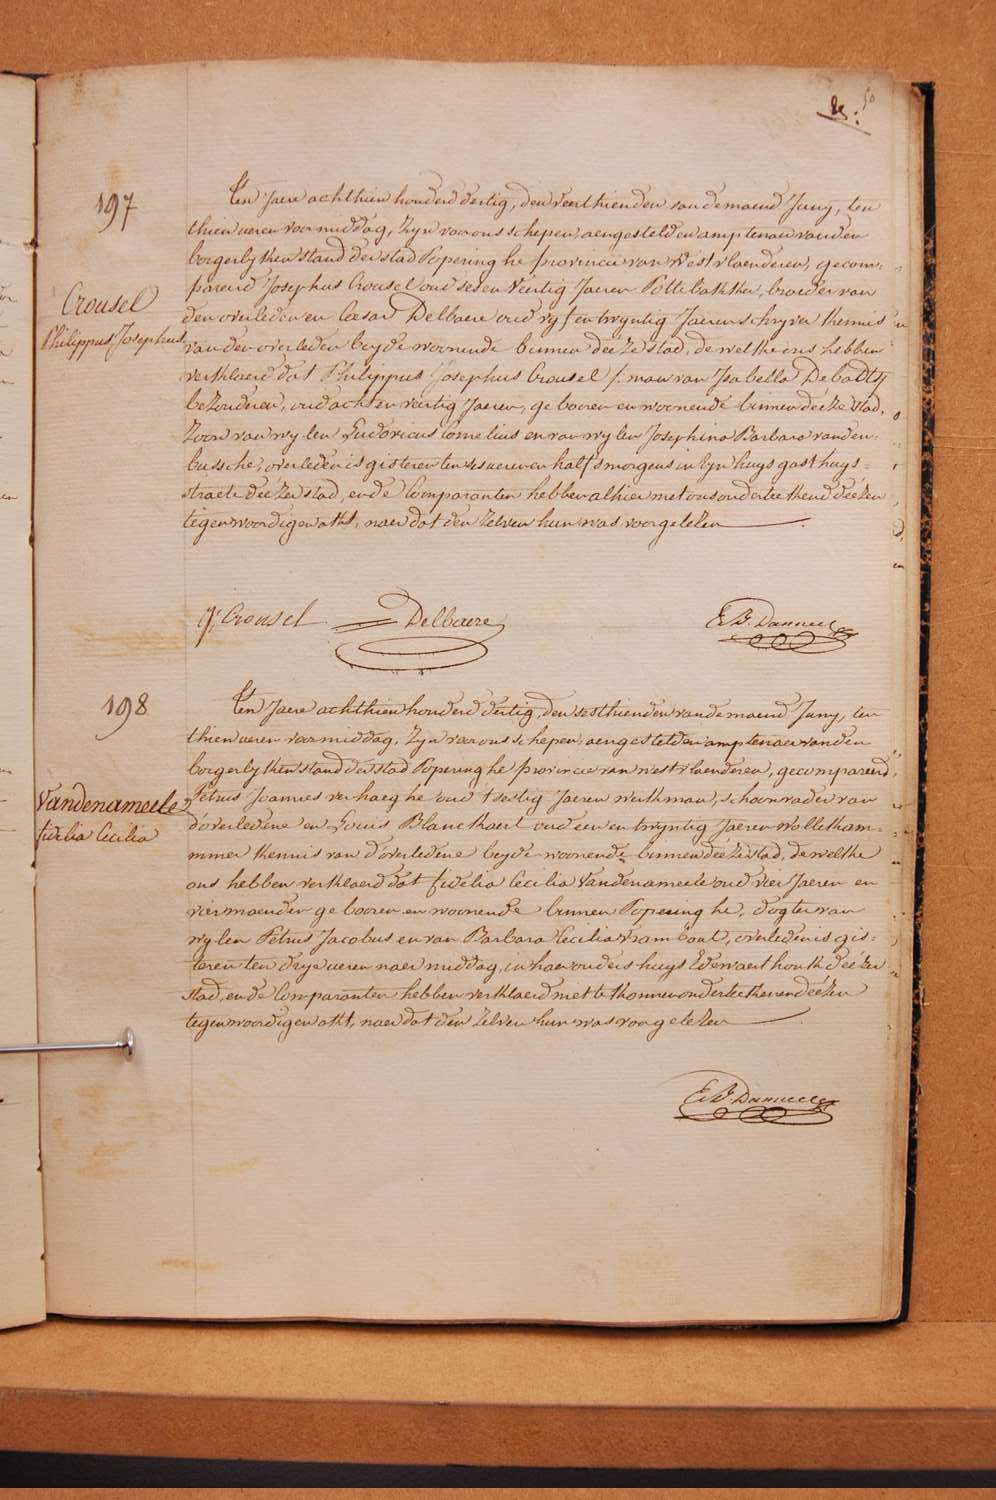 50
197
Crousel
Philippus Josephus
Ten Jaere achthien honderd dertig, den veerthienden van de maend Juny, ten
thien ueren voormiddag, Zyn voor ons schepen, aengestelden amptenaer van den
borgerlyken stand der stad Poperinghe provincie van Westvlaenderen, gecom:
pareerd Josephus Crousel oud seven veertig Jaeren Pottebakker, broeder van
den overleden en Cesar Delbaere oud vyf en twyntig Jaeren schryver kennis
van den overleden beyde woonende binnen deéze stad, de welke ons hebben
verklaerd dat Philippus Josephus Crousel man van Isabella Debadts
bezonderen, oud acht en veertig Jaeren, gebooren en woonende binnen deéze stad,
Zoon van wylen Ludovicus Cornelius en van wylen Josephina Barbara vanden:
bussche, overleden is gisteren ten ses ueren en half smorgens in Zyn huys gasthuys=
straete deézer stad, en de Comparanten hebben alhier met ons onderteekend deézen
tegenwoordigen akt, naer dat den Zelven hun was voorgelezen
J: Crousel Delbaere E. B. Danneel
198
Vandenameele
fidelia Cecilia
Ten Jaere achthien honderd dertig, den sesthienden van de maend Juny, ten
thien ueren voormiddag, Zyn voor ons schepen, aengestelden amptenaer van den
borgerlyken stand der stad Poperinghe provincie van westvlaenderen, gecompareerd
Petrus Joannes verhaeghe oud tsestig Jaeren werkman, schoonvader van
d'overledene en Louis Blanckaert oud een en twyntig Jaeren Wollekam=
mmer kennis van d'overledene beyde woonende binnen deéze stad, de welke
ons hebben verklaerd dat fidelia Cecilia Vandenameele oud vier Jaeren en
vier maenden gebooren en woonende binnen Poperinghe, dogter van
wylen Petrus Jacobus en van Barbara Cecilia Vrambout, overleden is gis:
teren ten drye ueren naer middag, in haer ouders huys Edewaerthoek deézer
stad, en de Comparanten hebben verklaerd niet te konnen onderteekenen deézen
tegenwoordigen akt, naer dat den Zelven hun was voorgelezen
E. B. Danneel